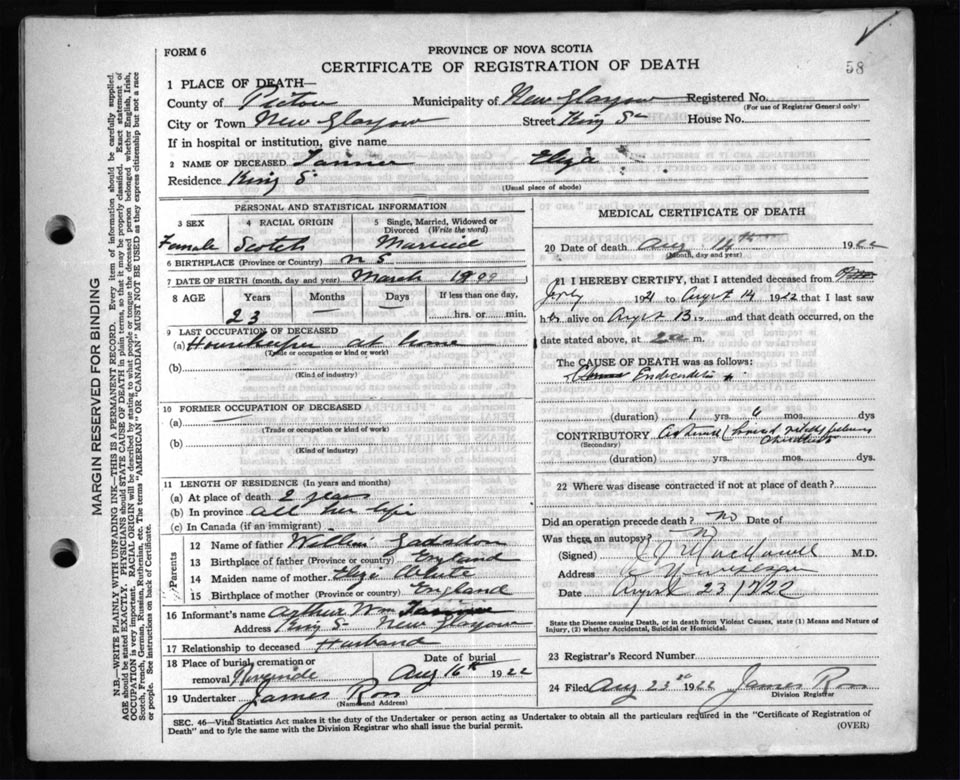 58
FORM 6
PROVINCE OF NOVA SCOTIA
CERTIFICATE OF REGISTRATION OF DEATH
1 PLACE OF DEATH—
County of Pictou Municipality of New Glasgow Registered No.
(For use of Registrar General only)
City or Town New Glasgow Street King St House No.
If in hospital or institution, give name
2 NAME OF DECEASED Eliza
Residence King St
(Usual place of abode)
PERSONAL AND STATISTICAL INFORMATION
3 SEX 4 RACIAL ORIGIN 5 Single, Married, Widowed or Divorced (Write the word)
Female Scotch Married
6 BIRTHPLACE (Province or Country) N S
7 DATE OF BIRTH (month, day and year) March 1899
8 AGE Years Months Days If less than one day,
23 hrs. or min.
9 LAST OCCUPATION OF DECEASED
(a) Housekeeper at home
(Trade or occupation or kind or work)
(b)
(Kind of industry)
10 FORMER OCCUPATION OF DECEASED
(a)
(Trade or occupation or kind of work)
(b)
(Kind of industry)
11 LENGTH OF RESIDENCE (In years and months)
(a) At place of death 2 years
(b) In province all her life
(c) In Canada (if an immigrant)
Parents
12 Name of father William
13 Birthplace of father (Province or country) England
14 Maiden name of mother Eliza White
15 Birthplace of mother (Province or country) England
16 Informant's name Arthur Wm
Address King St New Glasgow
17 Relationship to deceased Husband
18 Place of burial, cremation or removal Riverside Date of burial Aug 16th 1922
19 Undertaker James Ross
(Name and Address)
MEDICAL CERTIFICATE OF DEATH
20 Date of death Aug 14th 1922
(Month, day and year)
21 I HEREBY CERTIFY, that I attended deceased from
July 1921 to August 14 1922 that I last saw
her alive on August 13 and that death occurred, on
date stated above, at m.
The CAUSE OF DEATH was as follows:
Endocarditis
(duration) 1 yrs. 6 mos. dys
CONTRIBUTORY Asthma
(Secondary)
(duration) yrs. mos. dys.
22 Where was disease contracted if not at place of death?
Did an operation precede death? No Date of
Was there an autopsy? No
(Signed) M.D.
Address New Glasgow
Date August 23 1922
State the Disease causing Death, or in death from Violent Causes, state (1) Means and Nature of
Injury, (2) whether Accidental, Suicidal or Homicidal.
23 Registrar's Record Number
24 Filed Aug 23rd 1922 James Ross
Division Registrar
SEC. 46—Vital Statistics Act makes it the duty of the Undertaker or person acting as Undertaker to obtain all the particulars required in the "Certificate of Registration of
Death" and to fyle the same with the Division Registrar who shall issue the burial permit.
(OVER)
MARGIN RESERVED FOR BINDING
N.B.—WRITE PLAINLY WITH UNFADING INK—THIS IS A PERMANENT RECORD. Every item of information should be carefully supplied.
AGE should be stated EXACTLY. PHYSICIANS should STATE CAUSE OF DEATH in plain terms, so that it may be properly classified. Exact statement of
OCCUPATION is very important. RACIAL ORIGIN will be described by stating to what people or tongue the deceased person belonged whether English, Irish,
Scotch, French, German, Russian, Ruthenian, etc. The terms "AMERICAN" or "CANADIAN" MUST NOT BE USED as they express citizenship but not a race
or people. See instructions on back of Certificate.